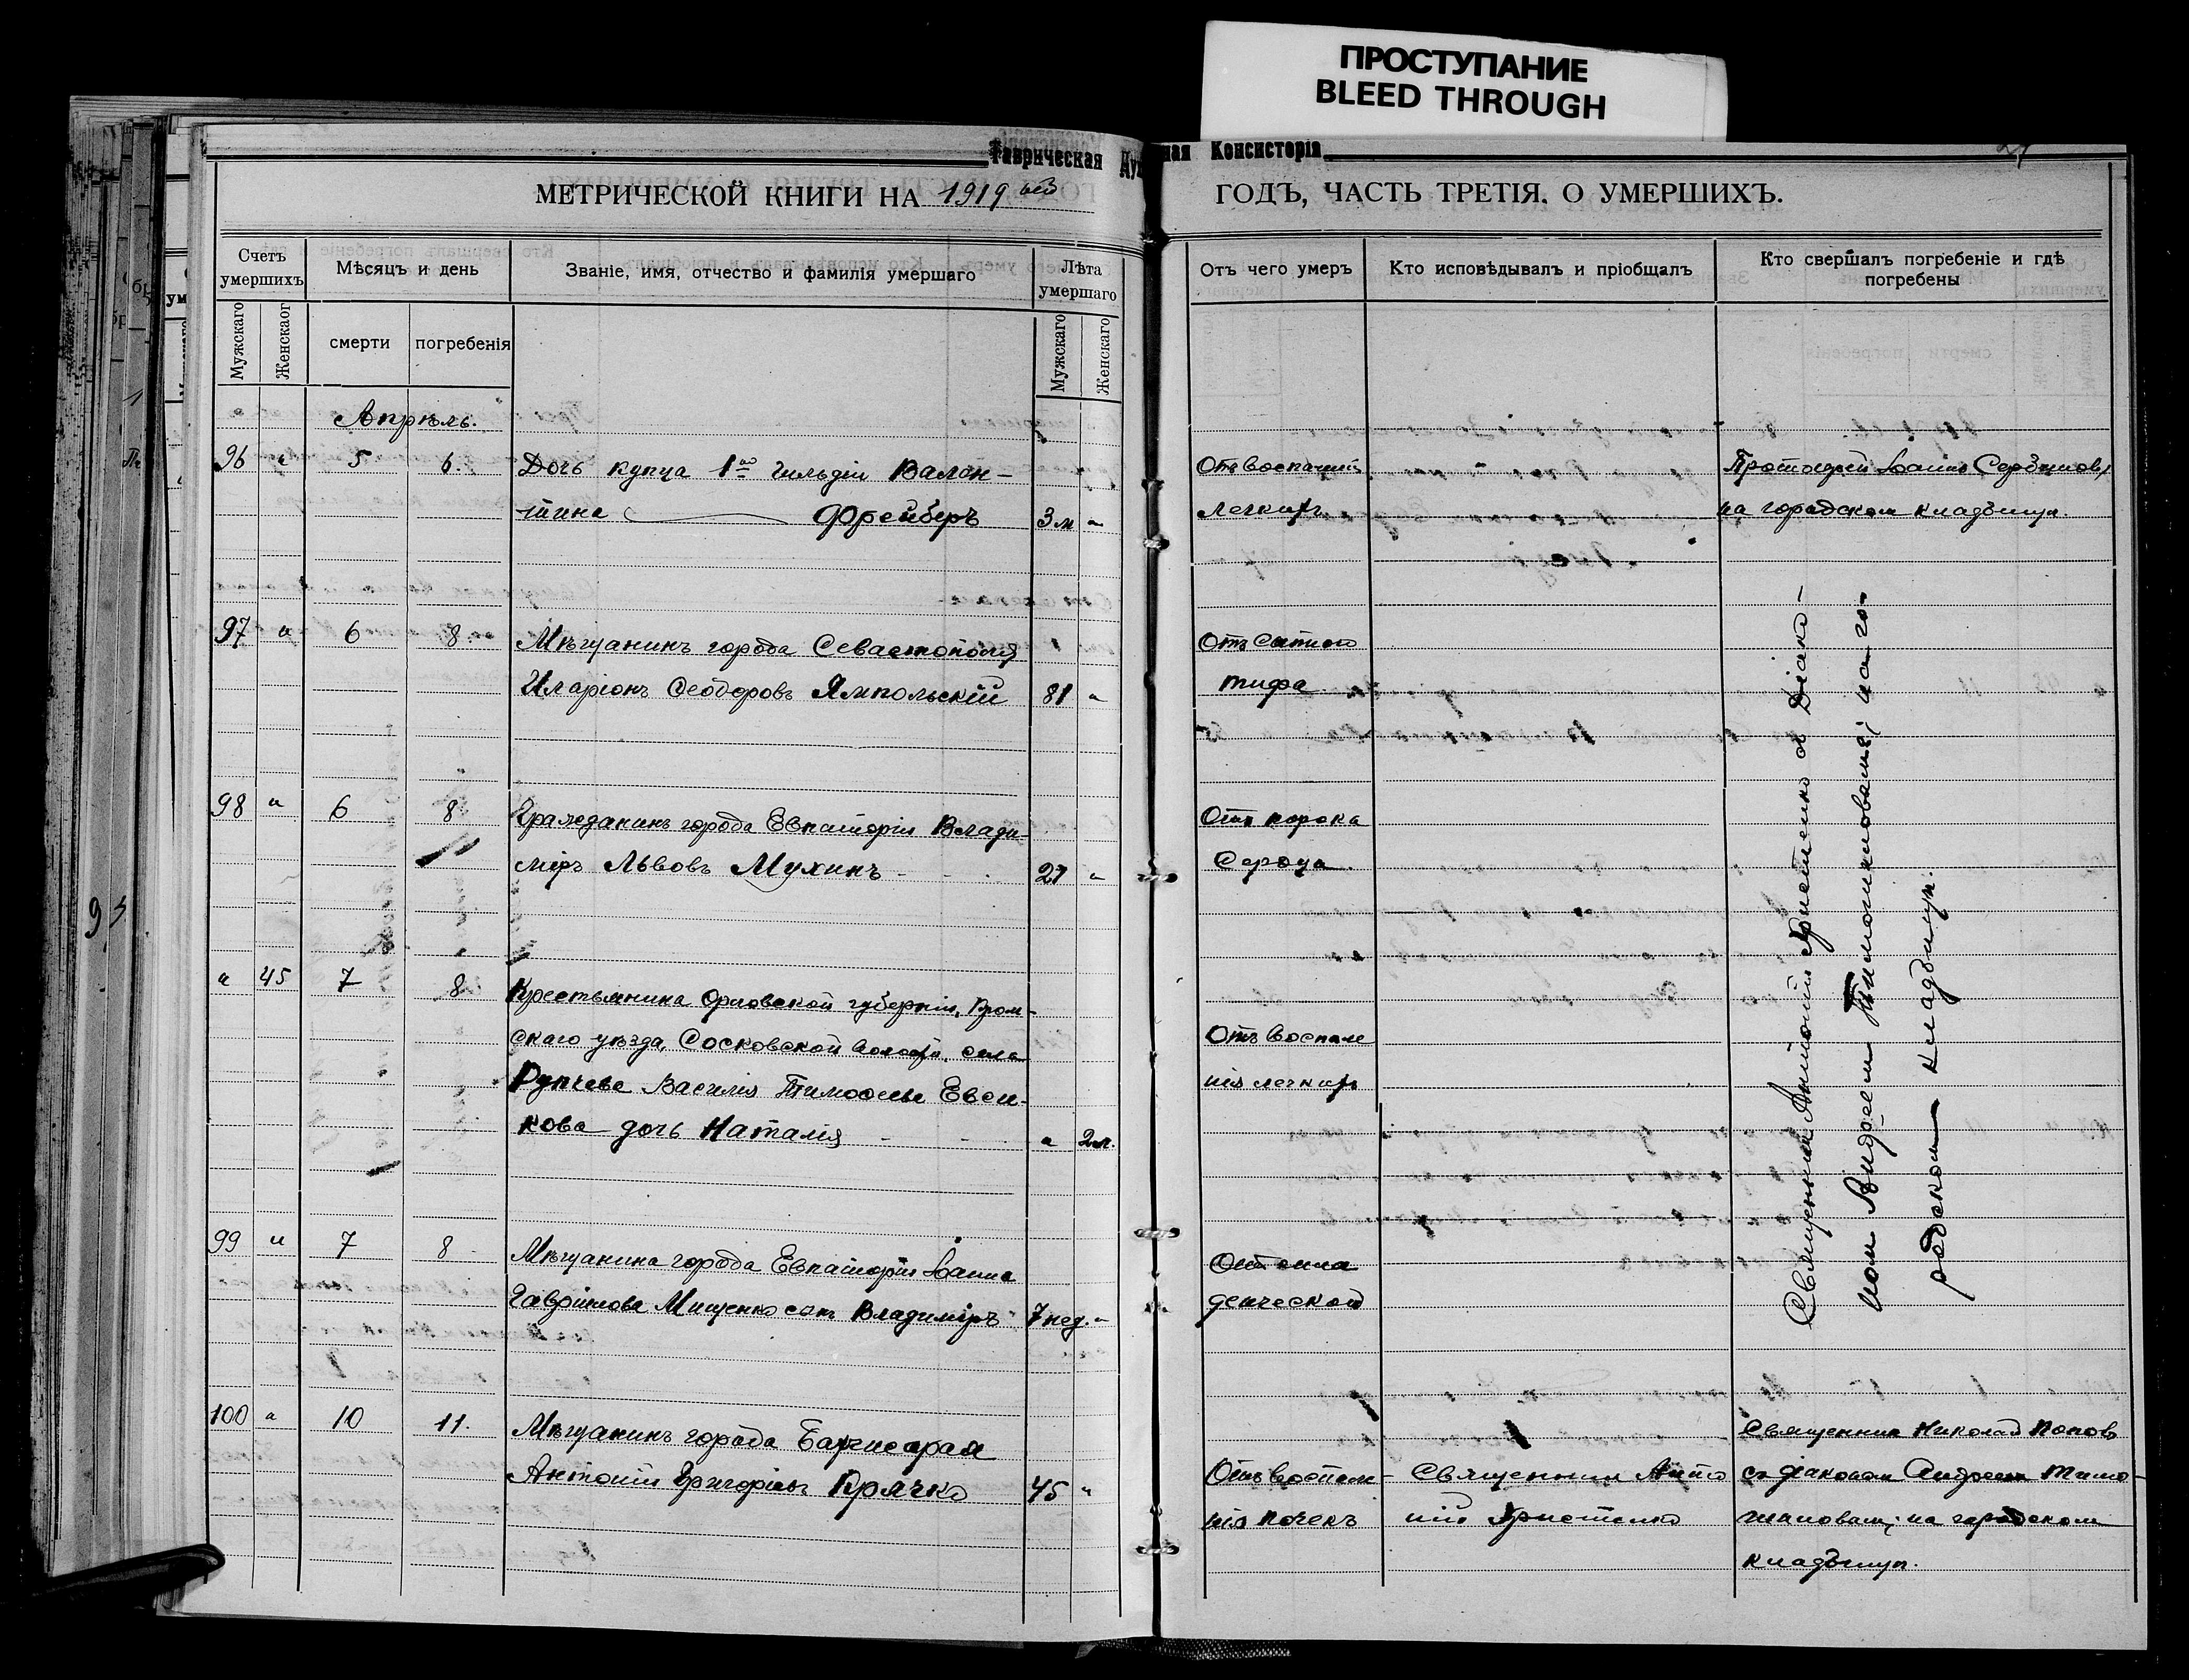 ПРОСТУПАНИЕ
BLEED THROUGH
Таврическая Духовная Консисторія
МЕТРИЧЕСКОЙ КНИГИ НА 1919 ый ГОДЪ, ЧАСТЬ ТРЕТІЯ, О УМЕРШИХЪ.
Счетъ умершихъ
Мѣсяцъ и день
Званіе, имя, отчество и фамилія умершаго
Лѣта умершаго
Отъ чего умеръ
Кто исповѣдывалъ и пріобщалъ
Кто свершалъ погребеніе и гдѣ погребены
Мужскаго
Женскаог
смерти
погребенія
Мужскаго
Женскаго
Апрѣль.
96 " 5 6. Дочь купца 1ой гильдіи Вален-
тина Фрейберъ 3 м "
Отъ воспаленія
легкихъ
Протоіерей Іоаннъ Сербиновъ,
на городскомъ кладбищѣ.
97 " 6 8. Мѣщанинъ города Севастополя
Иларіонъ Ѳеодоровъ Ямпольскій 81 "
Отъ сыпного
тифа
98 " 6 8 Гражданинъ города Евпаторіи Влади-
міръ Львовъ Мухинъ 27 "
Отъ порока
сердца
" 45 7 8 Крестьянина Орловской губерніи, Кром-
скаго уѣзда, Сосковской волости, села
Василія Тимоѳеева
дочь Наталія " 2 м.
Отъ воспале
нія легкихъ
99 " 7 8 Мѣщанина города Евпаторіи Іоанна
Гавріилова Мищенко сынъ Владиміръ 7 нед. "
Священникъ Антоній Христенко съ Діако-
номъ Андреемъ Тимошиновымъ; на го-
родскомъ кладбищѣ.
100 " 10 11. Мѣщанинъ города Бахчисарая
Антоній Григоріевъ Крячко 45 "
Отъ воспале-
нія почекъ
Священникъ Анто
ній Христенко
Священникъ Николай Поповъ
съ діакономъ Андреемъ Тимо-
шиновымъ; на городскомъ
кладбищѣ.